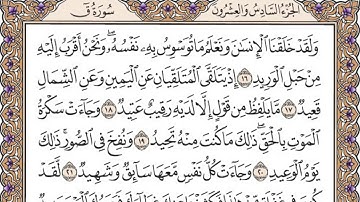 الجزء السادس والعشرون سورة ق
ولقد خلقنا الإنسان ونعلم ما توسوس به نفسه ونحن أقرب إليه
من حبل الوريد ١٦ إذ يتلقى المتلقيان عن اليمين وعن الشمال
قعيد ١٧ ما يلفظ من قول إلا لديه رقيب عتيد ١٨ وجاءت سكرة
الموت بالحق ذلك ما كنت منه تحيد ١٩ ونفخ في الصور ذلك
يوم الوعيد ٢٠ وجاءت كل نفس معها سائق وشهيد ٢١ لقد